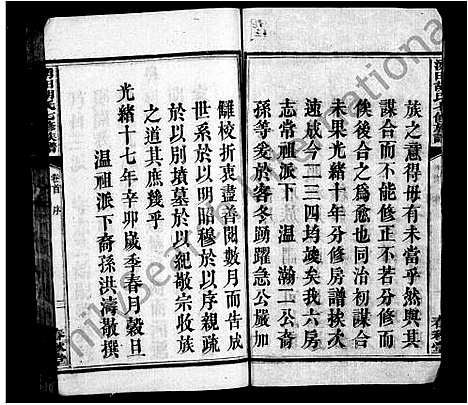 族之意得毋有未當乎然與其
謀合而不能修正不若分修而
俟後合之為愈也同治初謀合
未果光緒十年分修房譜挨次
速成今二三四均竣矣我六房
志常祖派下溫瀚二公裔
孫等爰於客冬踴躍急公嚴加
讎校折衷盡善閱數月而告成
世系於以明昭穆於以序親疏
於以別墳墓於以紀敬宗收族
之道其庶幾乎
光緒十七年辛卯歲季春月穀旦
溫祖派下裔孫洪濤敬撰
卷首 序